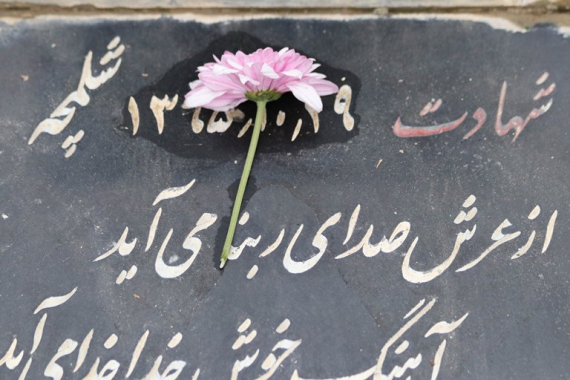 شهادت ۱۳۶۵٫۱۰٫۱۹ شلمچه
از عرش صدای ربنا می آید
آهنگ خوش خدا خدا می آید